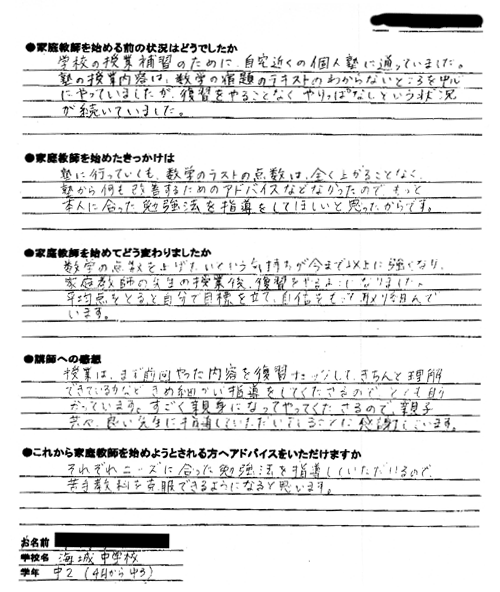 ●家庭教師を始める前の状況はどうでしたか
学校の授業補習のために、自宅近くの個人塾に通っていました。
塾の授業内容は、数学の宿題のテキストのわからないところを中心
にやっていましたが、復習をやることなくやりっぱなしという状況
が続いていました。
●家庭教師を始めたきっかけは
塾に行っていても、数学のテストの点数は、全く上がることなく、
塾から何も改善するためのアドバイスなどなかったので、もっと
本人に合った勉強法を指導をしてほしいと思ったからです。
●家庭教師を始めてどう変わりましたか
数学の点数を上げたいという気持ちが今まで以上に強くなり、
家庭教師の先生の授業後、復習をやるようになりました。
平均点をとると自分で目標を立て、自信をもって取り組んで
います。
●講師への感想
授業は、まず前回やった内容を復習チェックして、きちんと理解
できているかなどきめ細かい指導をしてくださるので、とても助
かっています。すごく親身になってやってくださるので、親子
共々、良い先生に指導していただいていることに感謝しています。
●これから家庭教師を始めようとされる方へアドバイスをいただけますか
それぞれニーズに合った勉強法を指導していただけるので、
苦手教科を克服できるようになると思います。
お名前
学校名 海城中学校
学年 中2 (4月から中3)